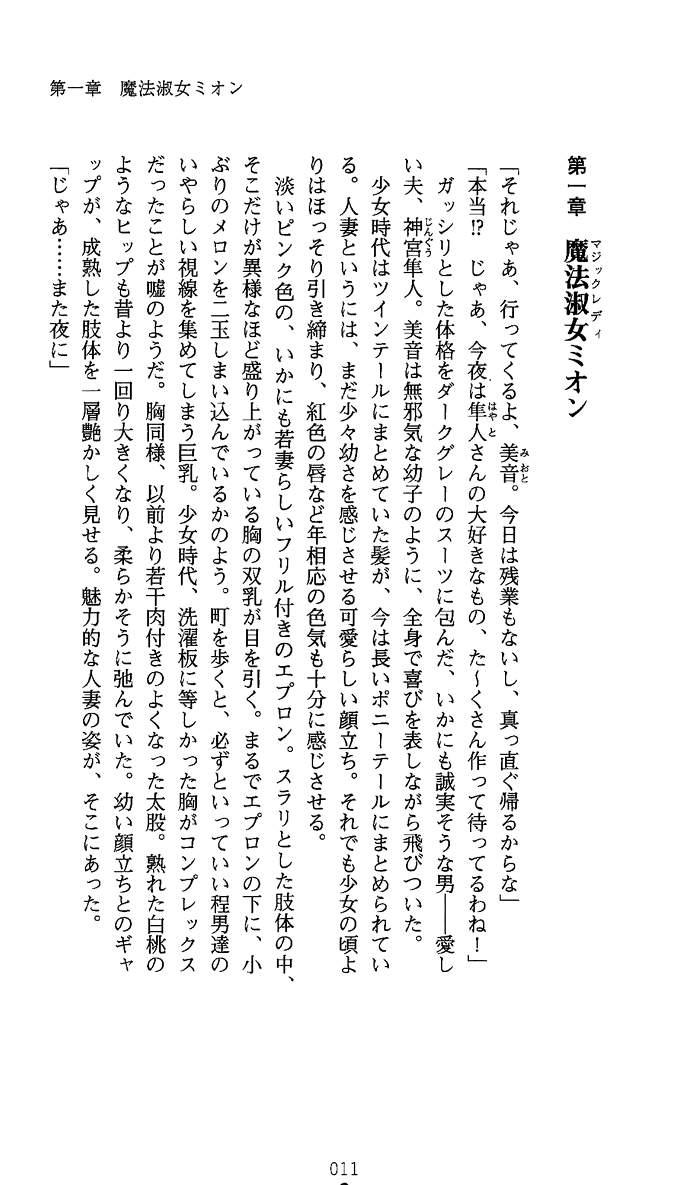 第一章　魔法淑女ミオン
第一章　魔法淑女ミオン
マジックレディ
「それじゃあ、行ってくるよ、美音。今日は残業もないし、真っ直ぐ帰るからな」
みおと
「本当!?　じゃあ、今夜は隼人さんの大好きなもの、た〜くさん作って待ってるわね！」
はやと
　ガッシリとした体格をダークグレーのスーツに包んだ、いかにも誠実そうな男――愛し
い夫、神宮隼人。美音は無邪気な幼子のように、全身で喜びを表しながら飛びついた。
じんぐう
　少女時代はツインテールにまとめていた髪が、今は長いポニーテールにまとめられてい
る。人妻というには、まだ少々幼さを感じさせる可愛らしい顔立ち。それでも少女の頃よ
りはほっそり引き締まり、紅色の唇など年相応の色気も十分に感じさせる。
　淡いピンク色の、いかにも若妻らしいフリル付きのエプロン。スラリとした肢体の中、
そこだけが異様なほど盛り上がっている胸の双乳が目を引く。まるでエプロンの下に、小
ぶりのメロンを二玉しまい込んでいるかのよう。町を歩くと、必ずといっていい程男達の
いやらしい視線を集めてしまう巨乳。少女時代、洗濯板に等しかった胸がコンプレックス
だったことが嘘のようだ。胸同様、以前より若干肉付きのよくなった太股。熟れた白桃の
ようなヒップも昔より一回り大きくなり、柔らかそうに弛んでいた。幼い顔立ちとのギャ
ップが、成熟した肢体を一層艶かしく見せる。魅力的な人妻の姿が、そこにあった。
「じゃあ……また夜に」
011